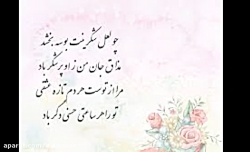 چو لعل شکرینت بوسه بخشد
مذاق جان من زو پر شکر باد
مرا از توست هر دم تازه عشقی
تو را هر ساعتی حسنی دگر باد